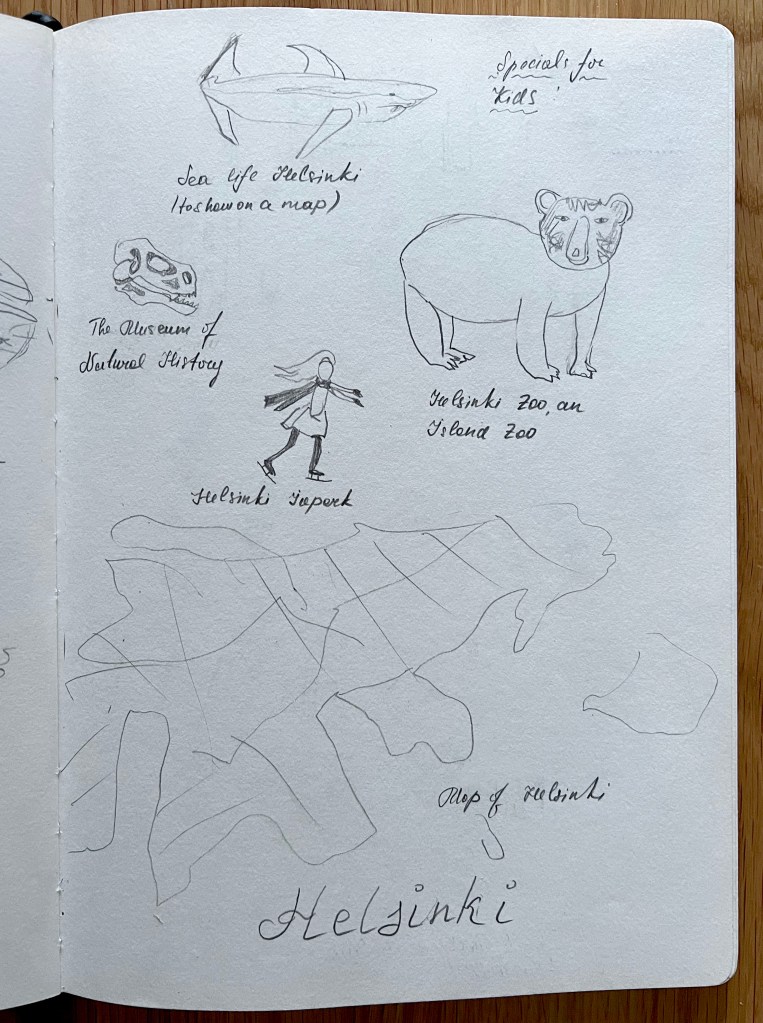 Specials for
Kids!
Sea life Helsinki
(to show on a map)
The Museum of
Natural History
Helsinki Zoo, an
Island Zoo
Helsinki Icepark
Map of Helsinki
Helsinki